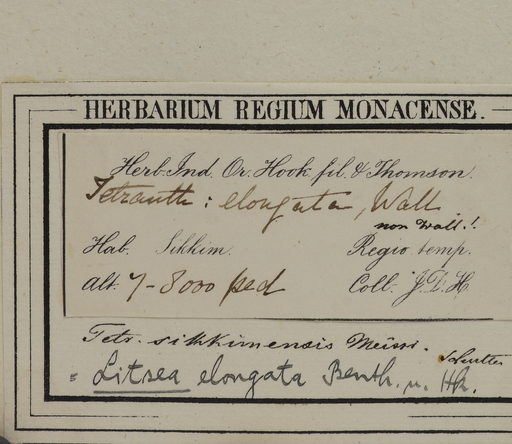 HERBARIUM REGIUM MONACENSE.
Herb. Ind. Or. Hook. fil. & Thomson.
Tetranth: elongata, Wall
non Wall.!
Hab. Sikkim. Regio temp.
Alt. 7-8000 ped Coll. J.D.H.
Tetr. sikkimensis Meissn.
= Litsea elongata Benth. u. Hk.